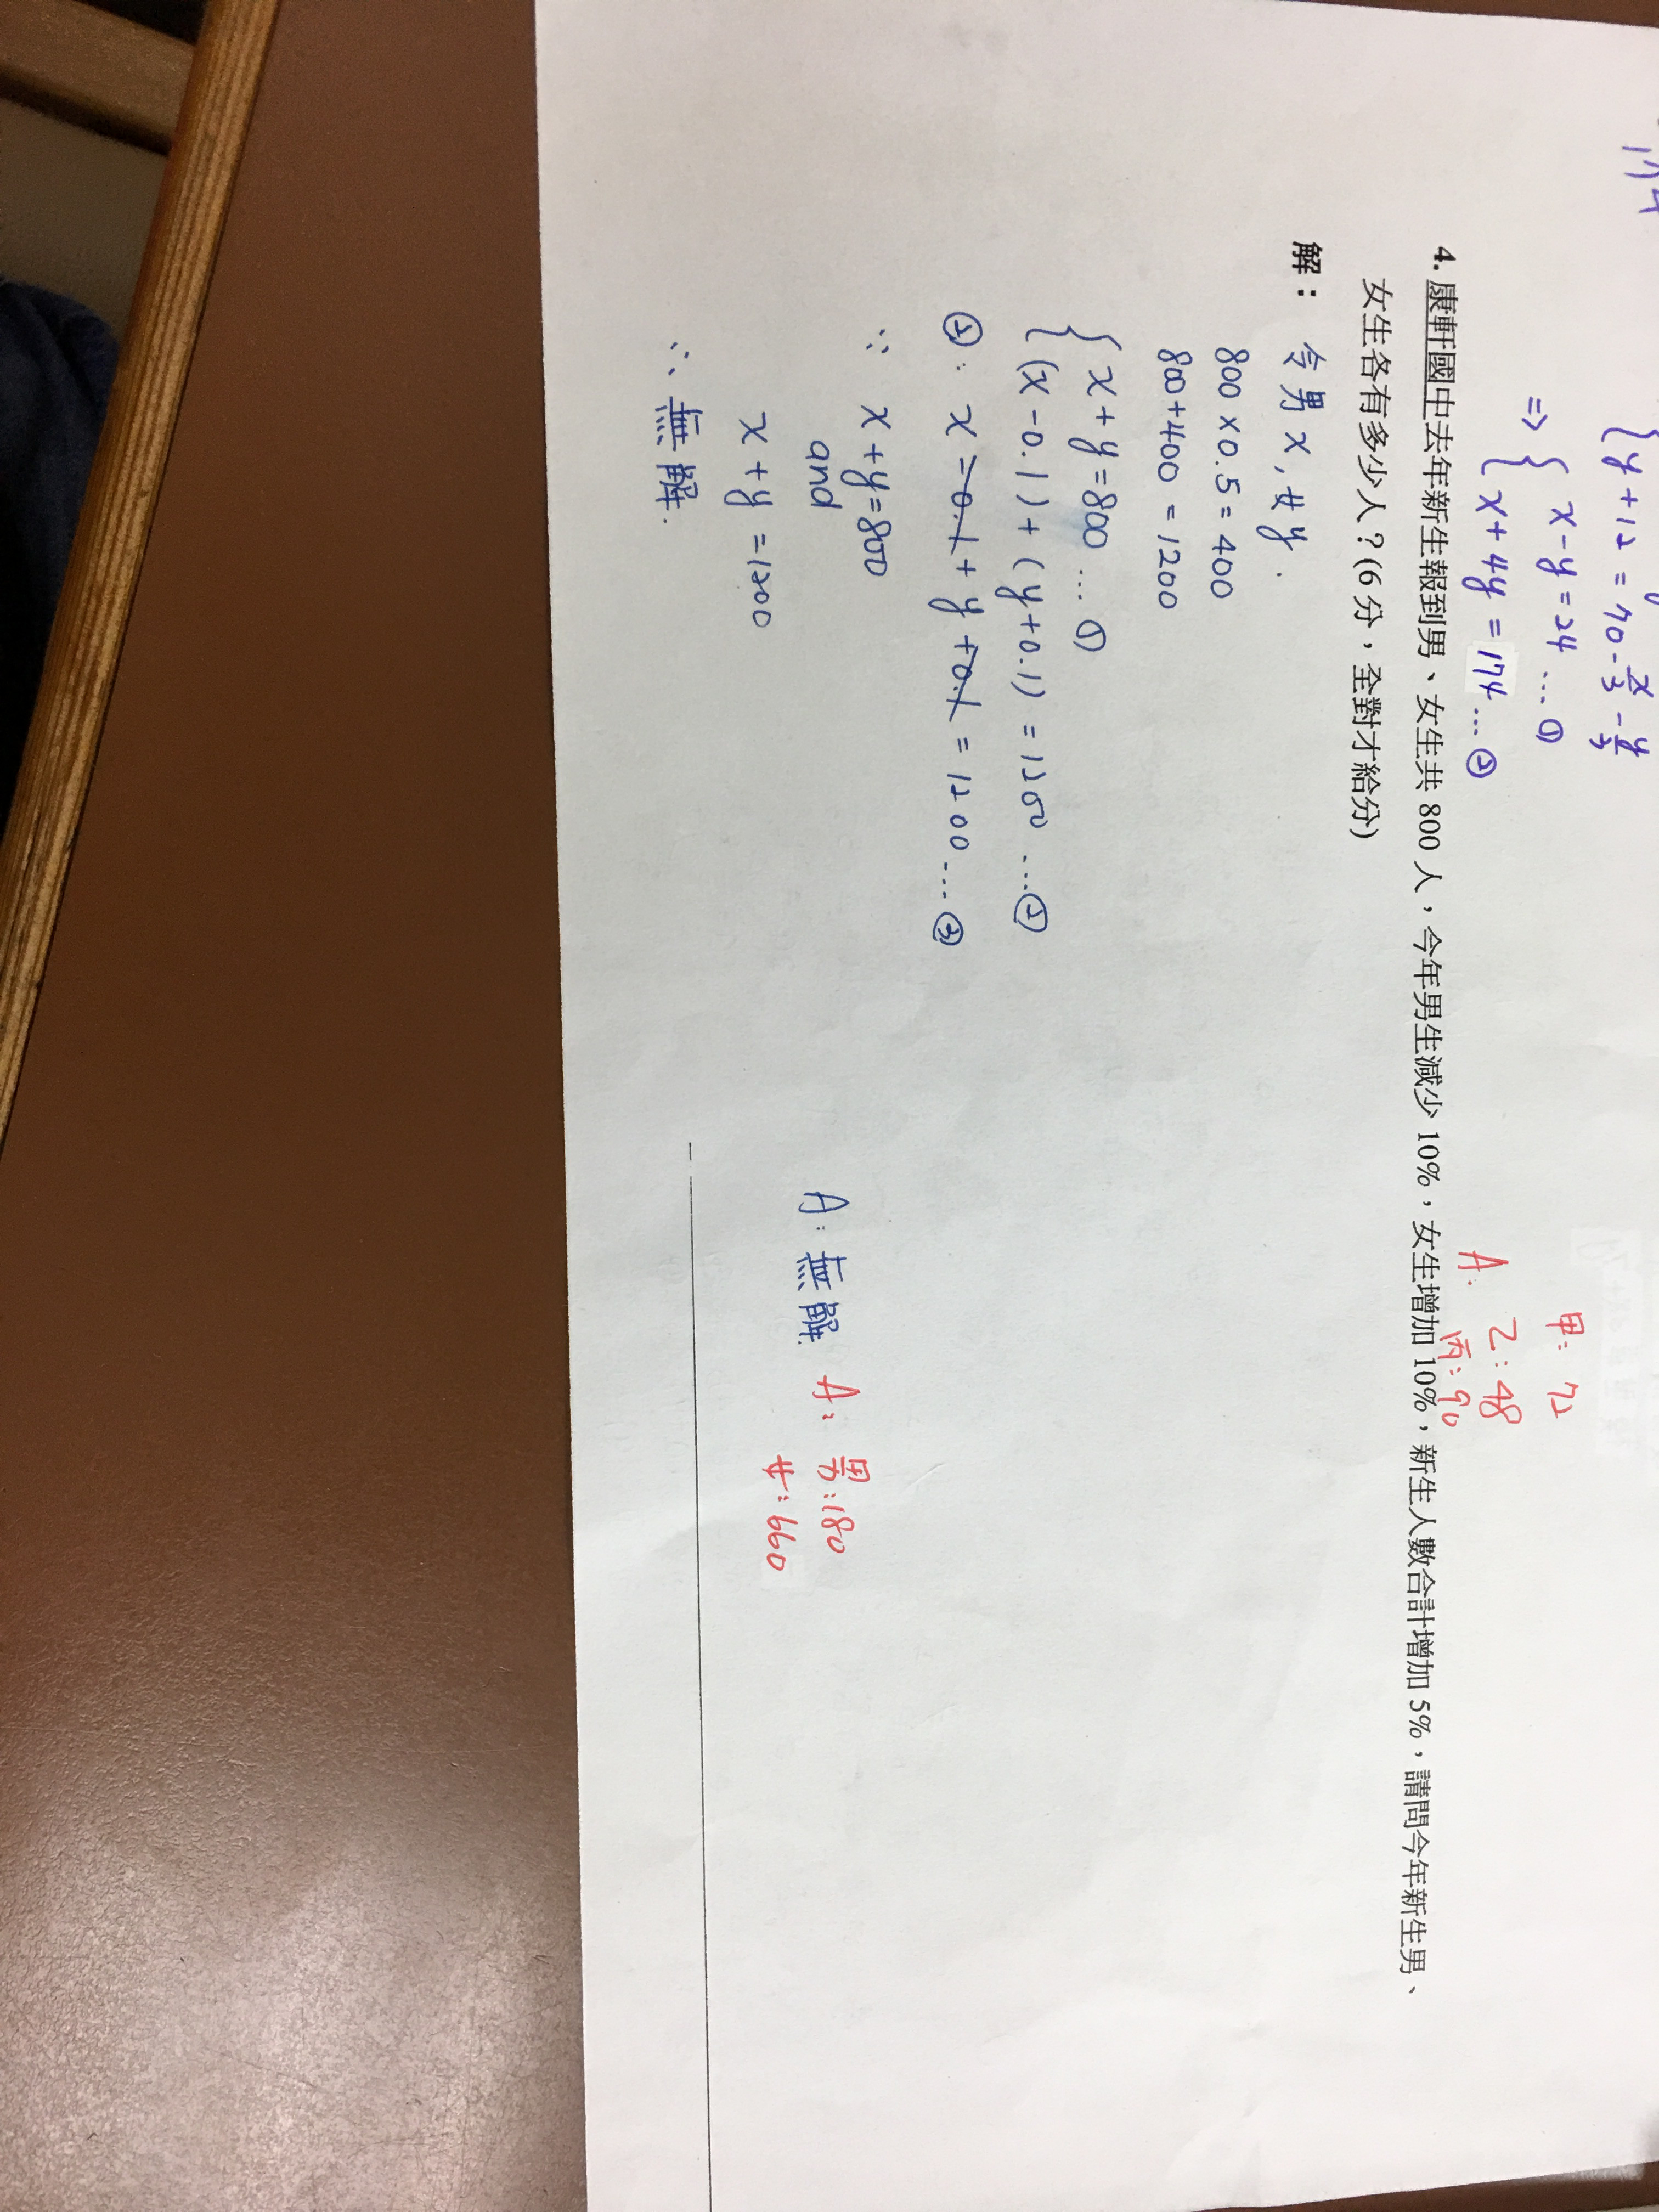 174
{ y+12=70-x/3-y/3
=> { x-y=24 ...①
x+4y=174...②
甲:72
A: 乙:48
丙:90
4. 康軒國中去年新生報到男、女生共 800 人，今年男生減少 10%，女生增加 10%，新生人數合計增加 5%，請問今年新生男、
女生各有多少人？(6 分，全對才給分)
解： 令男x,女y.
800×0.5=400
800+400=1200
{ x+y=800 ...①
(x-0.1)+(y+0.1)=1200 ...②
②: x-0.1+y+0.1=1200...③
∵ x+y=800
and
x+y=1200
∴ 無解.
A: 無解. A: 男:180
女:660